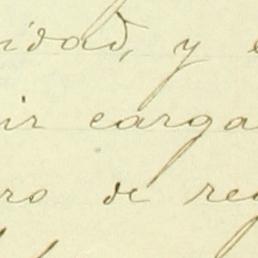 idad, y
ir carga
ro de re